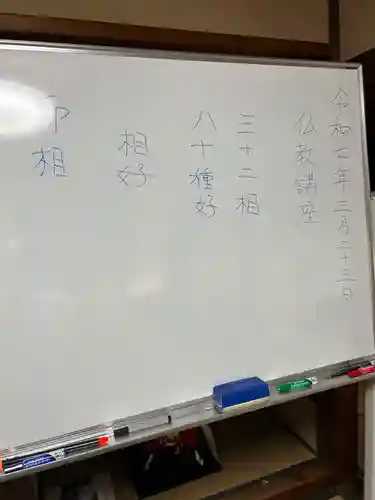 令和七年三月二十三日
仏教講座
三十二相
八十種好
相好
印相